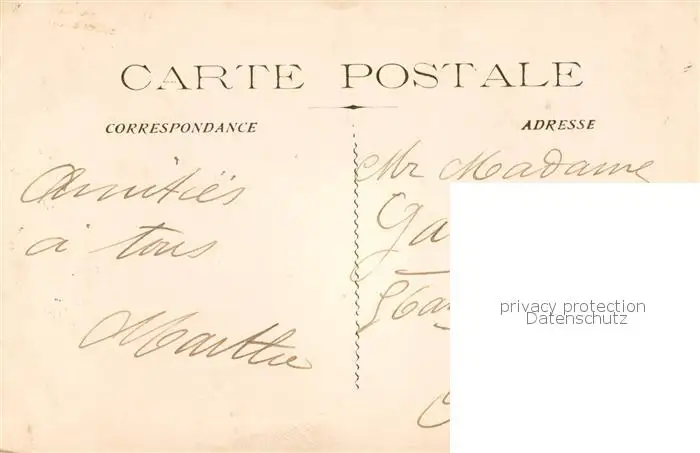 CARTE POSTALE
CORRESPONDANCE
ADRESSE
Amitiés
à tous
Marthe
Mr Madame
Ga
privacy protection
Datenschutz